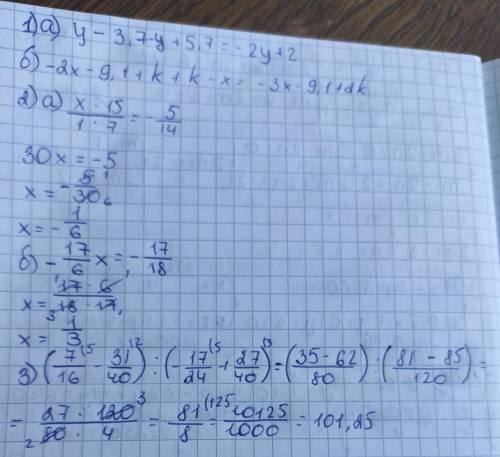 1)а) y - 3,7 - y + 5,7 = -2y + 2
б) -2x - 9,1 + k + k - x = -3x - 9,1 + 2k
2) а) x · 15 / 1 · 7 = - 5/14
30x = -5
x = - 5/30 1 6
x = - 1/6
б) - 17/6 x = - 17/18
x = 1 17 · 6 / 3 18 · 17 1
x = 1/3
3) (7/16 (5 - 31/40 (2) : (- 17/24 (5 + 27/40 (3) = (35 - 62 / 80) : (81 - 85 / 120) =
= 27 · 120 3 / 2 80 · 4 = 81/8 (125 = 10125/1000 = 101,25